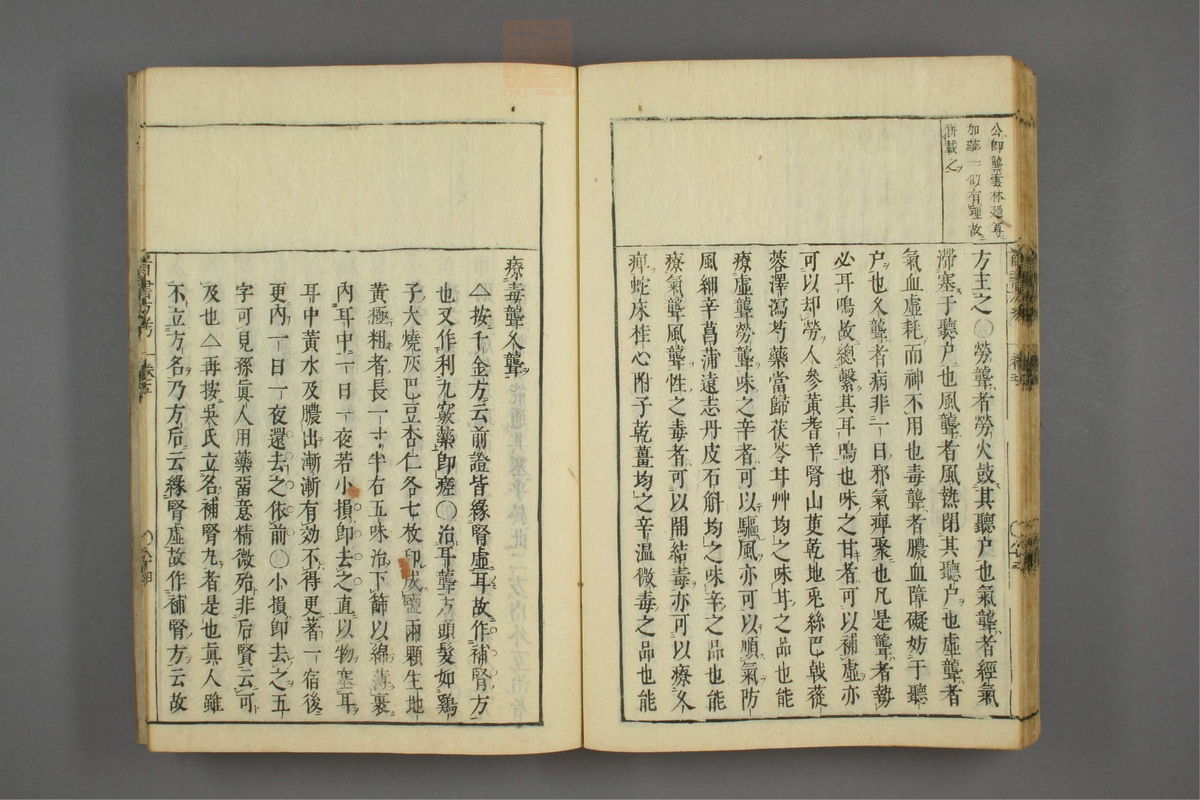 公師龔雲林廻耳
加藥一似有理故
併載之
方主之○勞聾者勞火鼓其聽户也氣聾者經氣
滯塞于聽户也風聾者風熱閉其聽户也虛聾者
氣血虛耗而神不用也毒聾者膿血障礙妨于聽
户也久聾者病非一日邪氣痺聚也凡是聾者勢
必耳鳴故總繫其耳鳴也味之甘者可以補虛亦
可以却勞人參黃耆羊腎山茰乾地兎絲巴戟蓯
蓉澤瀉芍藥當歸茯苓耳艸均之味耳之品也能
療虛聾勞聾味之辛者可以驅風亦可以順氣防
風細辛菖蒲遠志丹皮石斛均之味辛之品也能
療氣聾風聾性之毒者可以開結毒亦可以療久
痺蛇床桂心附子乾薑均之辛温微毒之品也能
療毒聾久聾
△按千金方云前證皆緣腎虛耳故作補腎方
也又作利九竅藥卽瘥○治耳聾方頭髮如鷄
子大燒灰巴豆杏仁各七枚印成鹽兩顆生地
黃極粗者長一寸半右五味治下篩以綿薄裹
內耳中一日一夜若小損卽去之直以物塞耳
耳中黃水及膿出漸漸有効不得更著一宿後
更內一日一夜還去之依前○小損卽去之五
字可見孫眞人用藥畱意精微殆非后賢云可
及也△再按吳氏立名補腎九者是也眞人雖
不立方名乃方后云緣腎虛故作補腎方云故